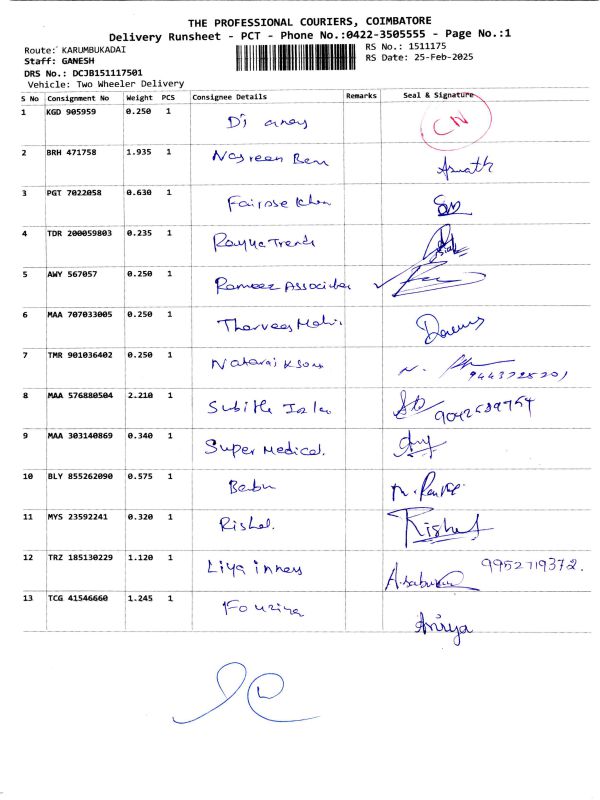 THE PROFESSIONAL COURIERS, COIMBATORE
Delivery Runsheet - PCT - Phone No.:0422-3505555 - Page No.:1
Route: KARUMBUKADAI
RS No.: 1511175
Staff: GANESH
RS Date: 25-Feb-2025
DRS No.: DCJB151117501
Vehicle: Two Wheeler Delivery
S No Consignment No Weight PCS Consignee Details Remarks Seal & Signature
1 KGD 905959 0.250 1 CN
2 BRH 471758 1.935 1 Nasreen
3 PGT 7022058 0.630 1 Fairose Khan
4 TDR 200059803 0.235 1
5 AWY 567057 0.250 1 Rameez Associates
6 MAA 707033005 0.250 1
7 TMR 901036402 0.250 1
8 MAA 576880504 2.210 1
9 MAA 303140869 0.340 1 Super Medical.
10 BLY 855262090 0.575 1 Babu
11 MYS 23592241 0.320 1 Rishel.
12 TRZ 185130229 1.120 1 Liya inners 9952719372.
13 TCG 41546660 1.245 1 Fouziya